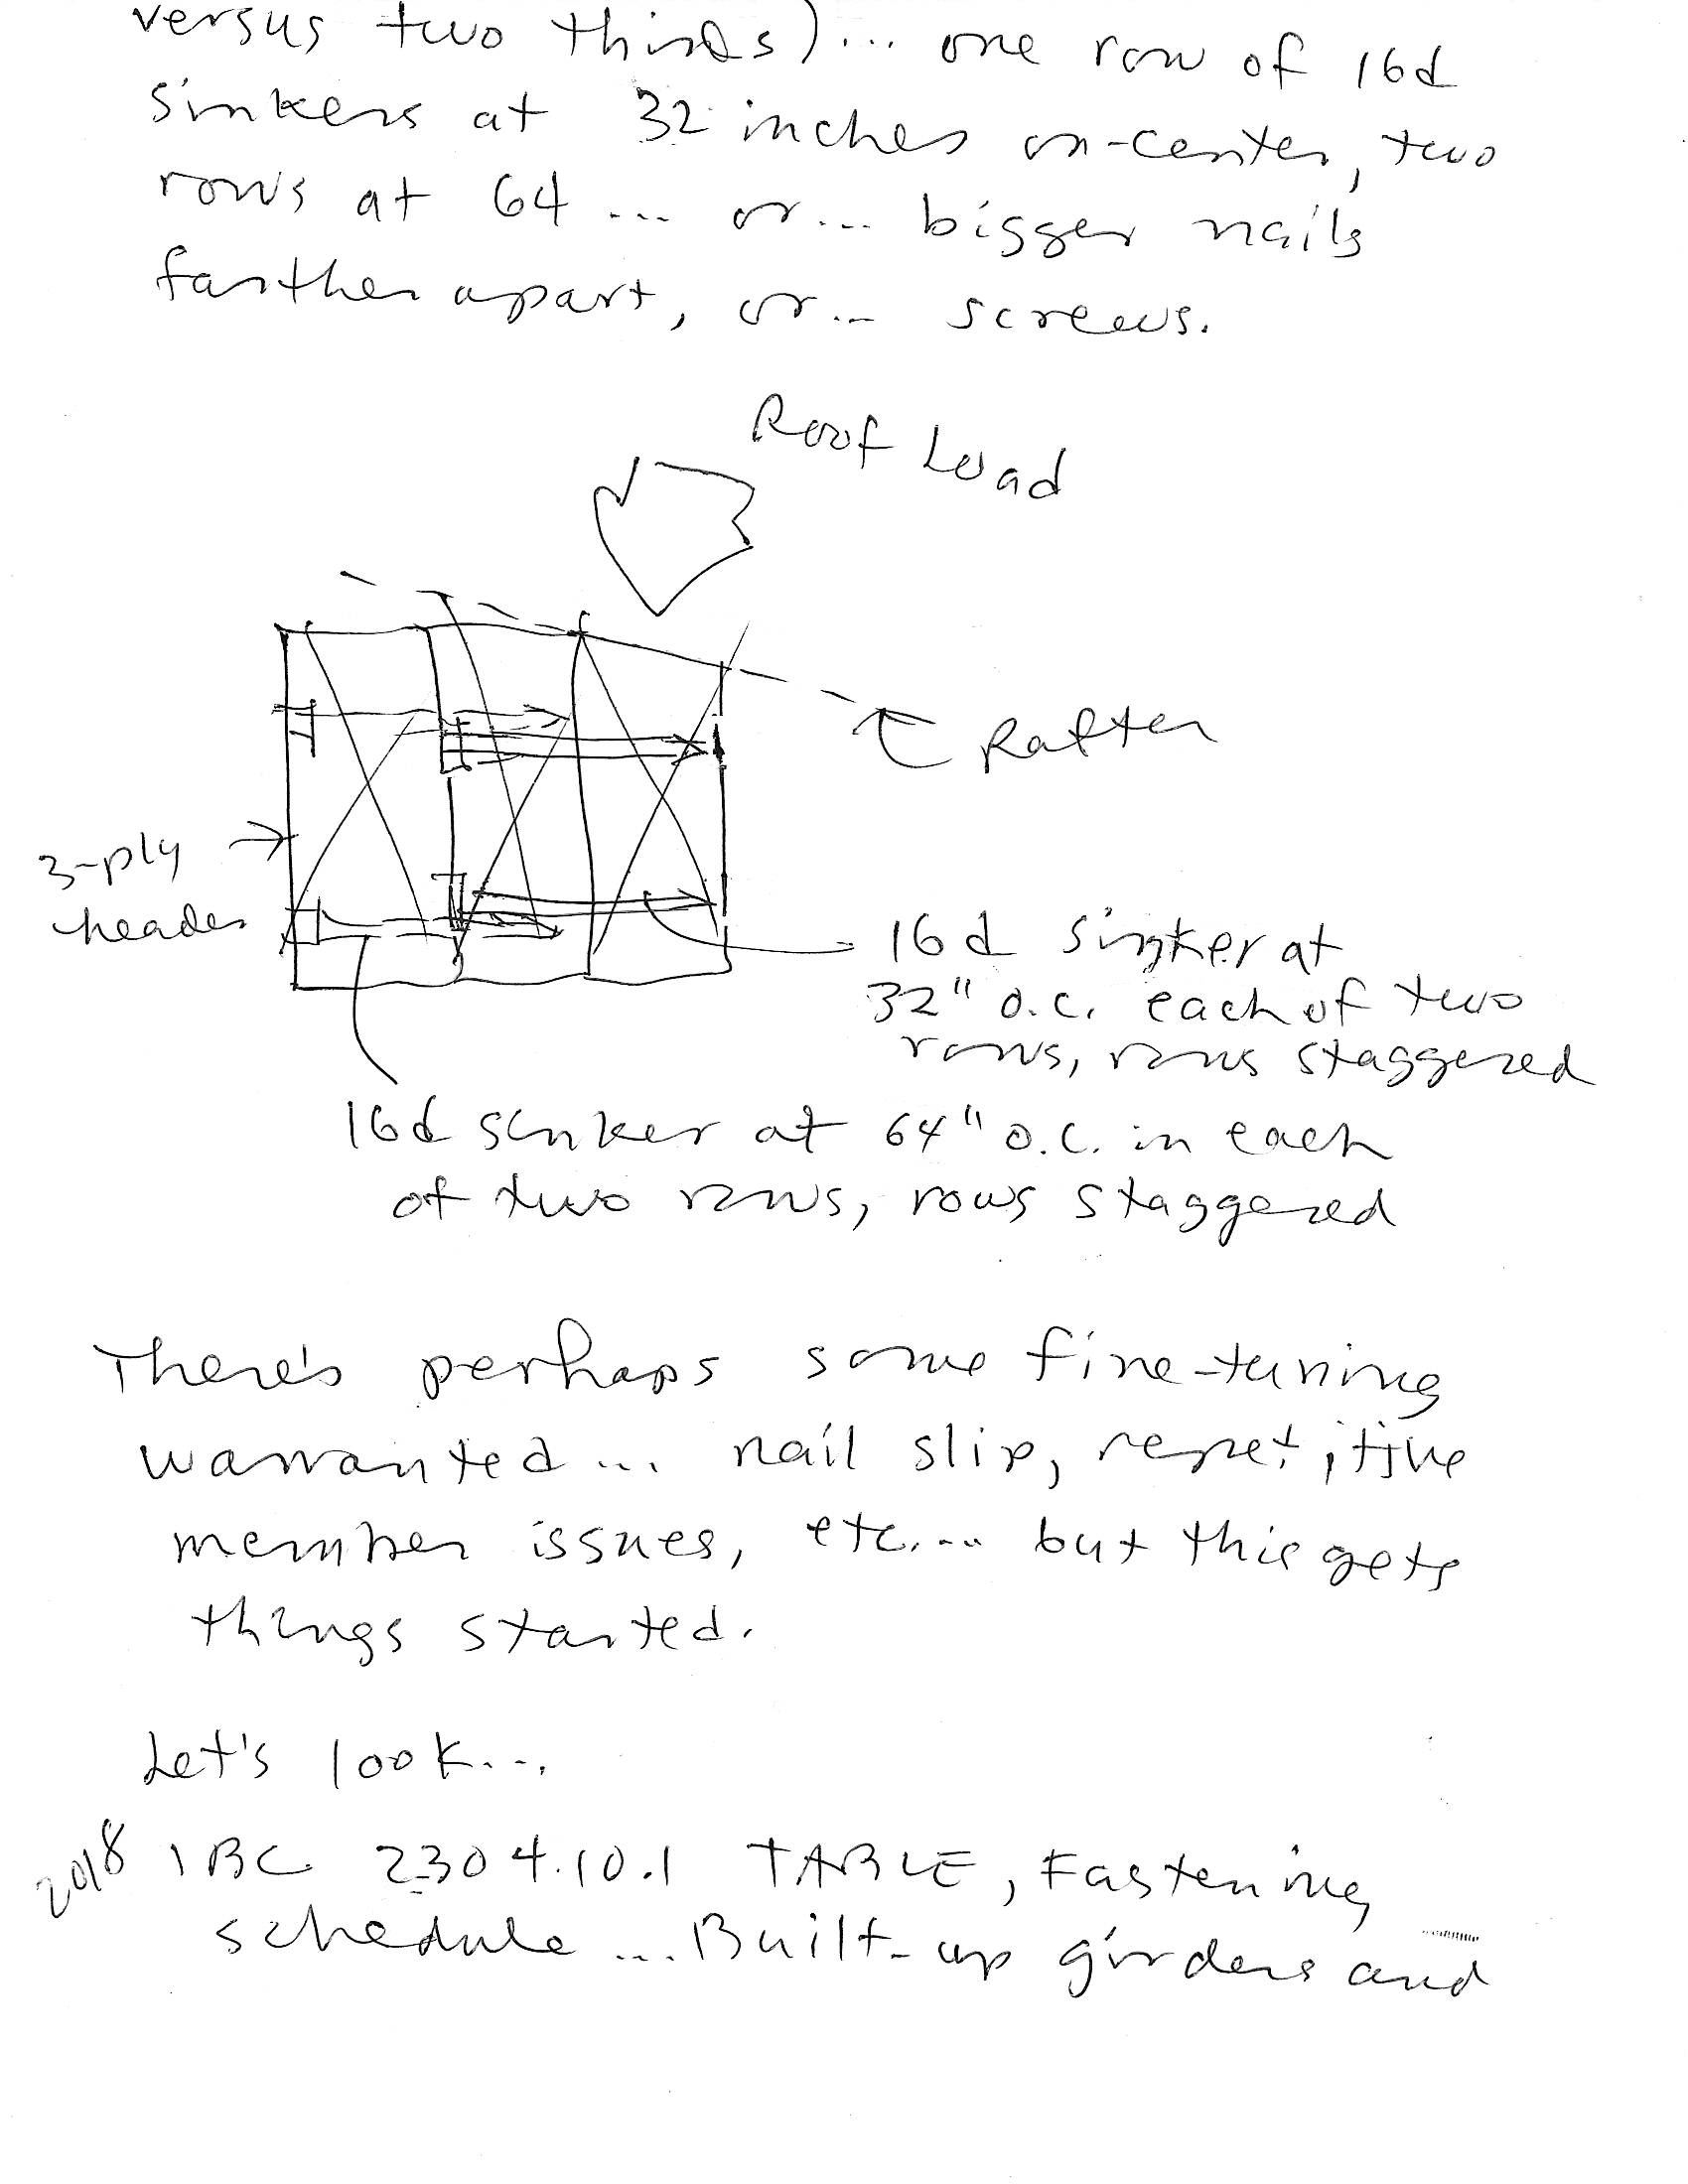 versus two thirds)... one row of 16d
sinkers at 32 inches on-center, two
rows at 64 ... or... bigger nails
farther apart, or... screws.
Roof Load
Rafter
3-ply
header
16d sinker at
32" o.c. each of two
rows, rows staggered
16d sinker at 64" o.c. in each
of two rows, rows staggered
There's perhaps some fine-tuning
warranted... nail slip, repetitive
member issues, etc.... but this gets
things started.
Let's look...
2018 IBC 2304.10.1 TABLE, Fastening
schedule ... Built-up girders and